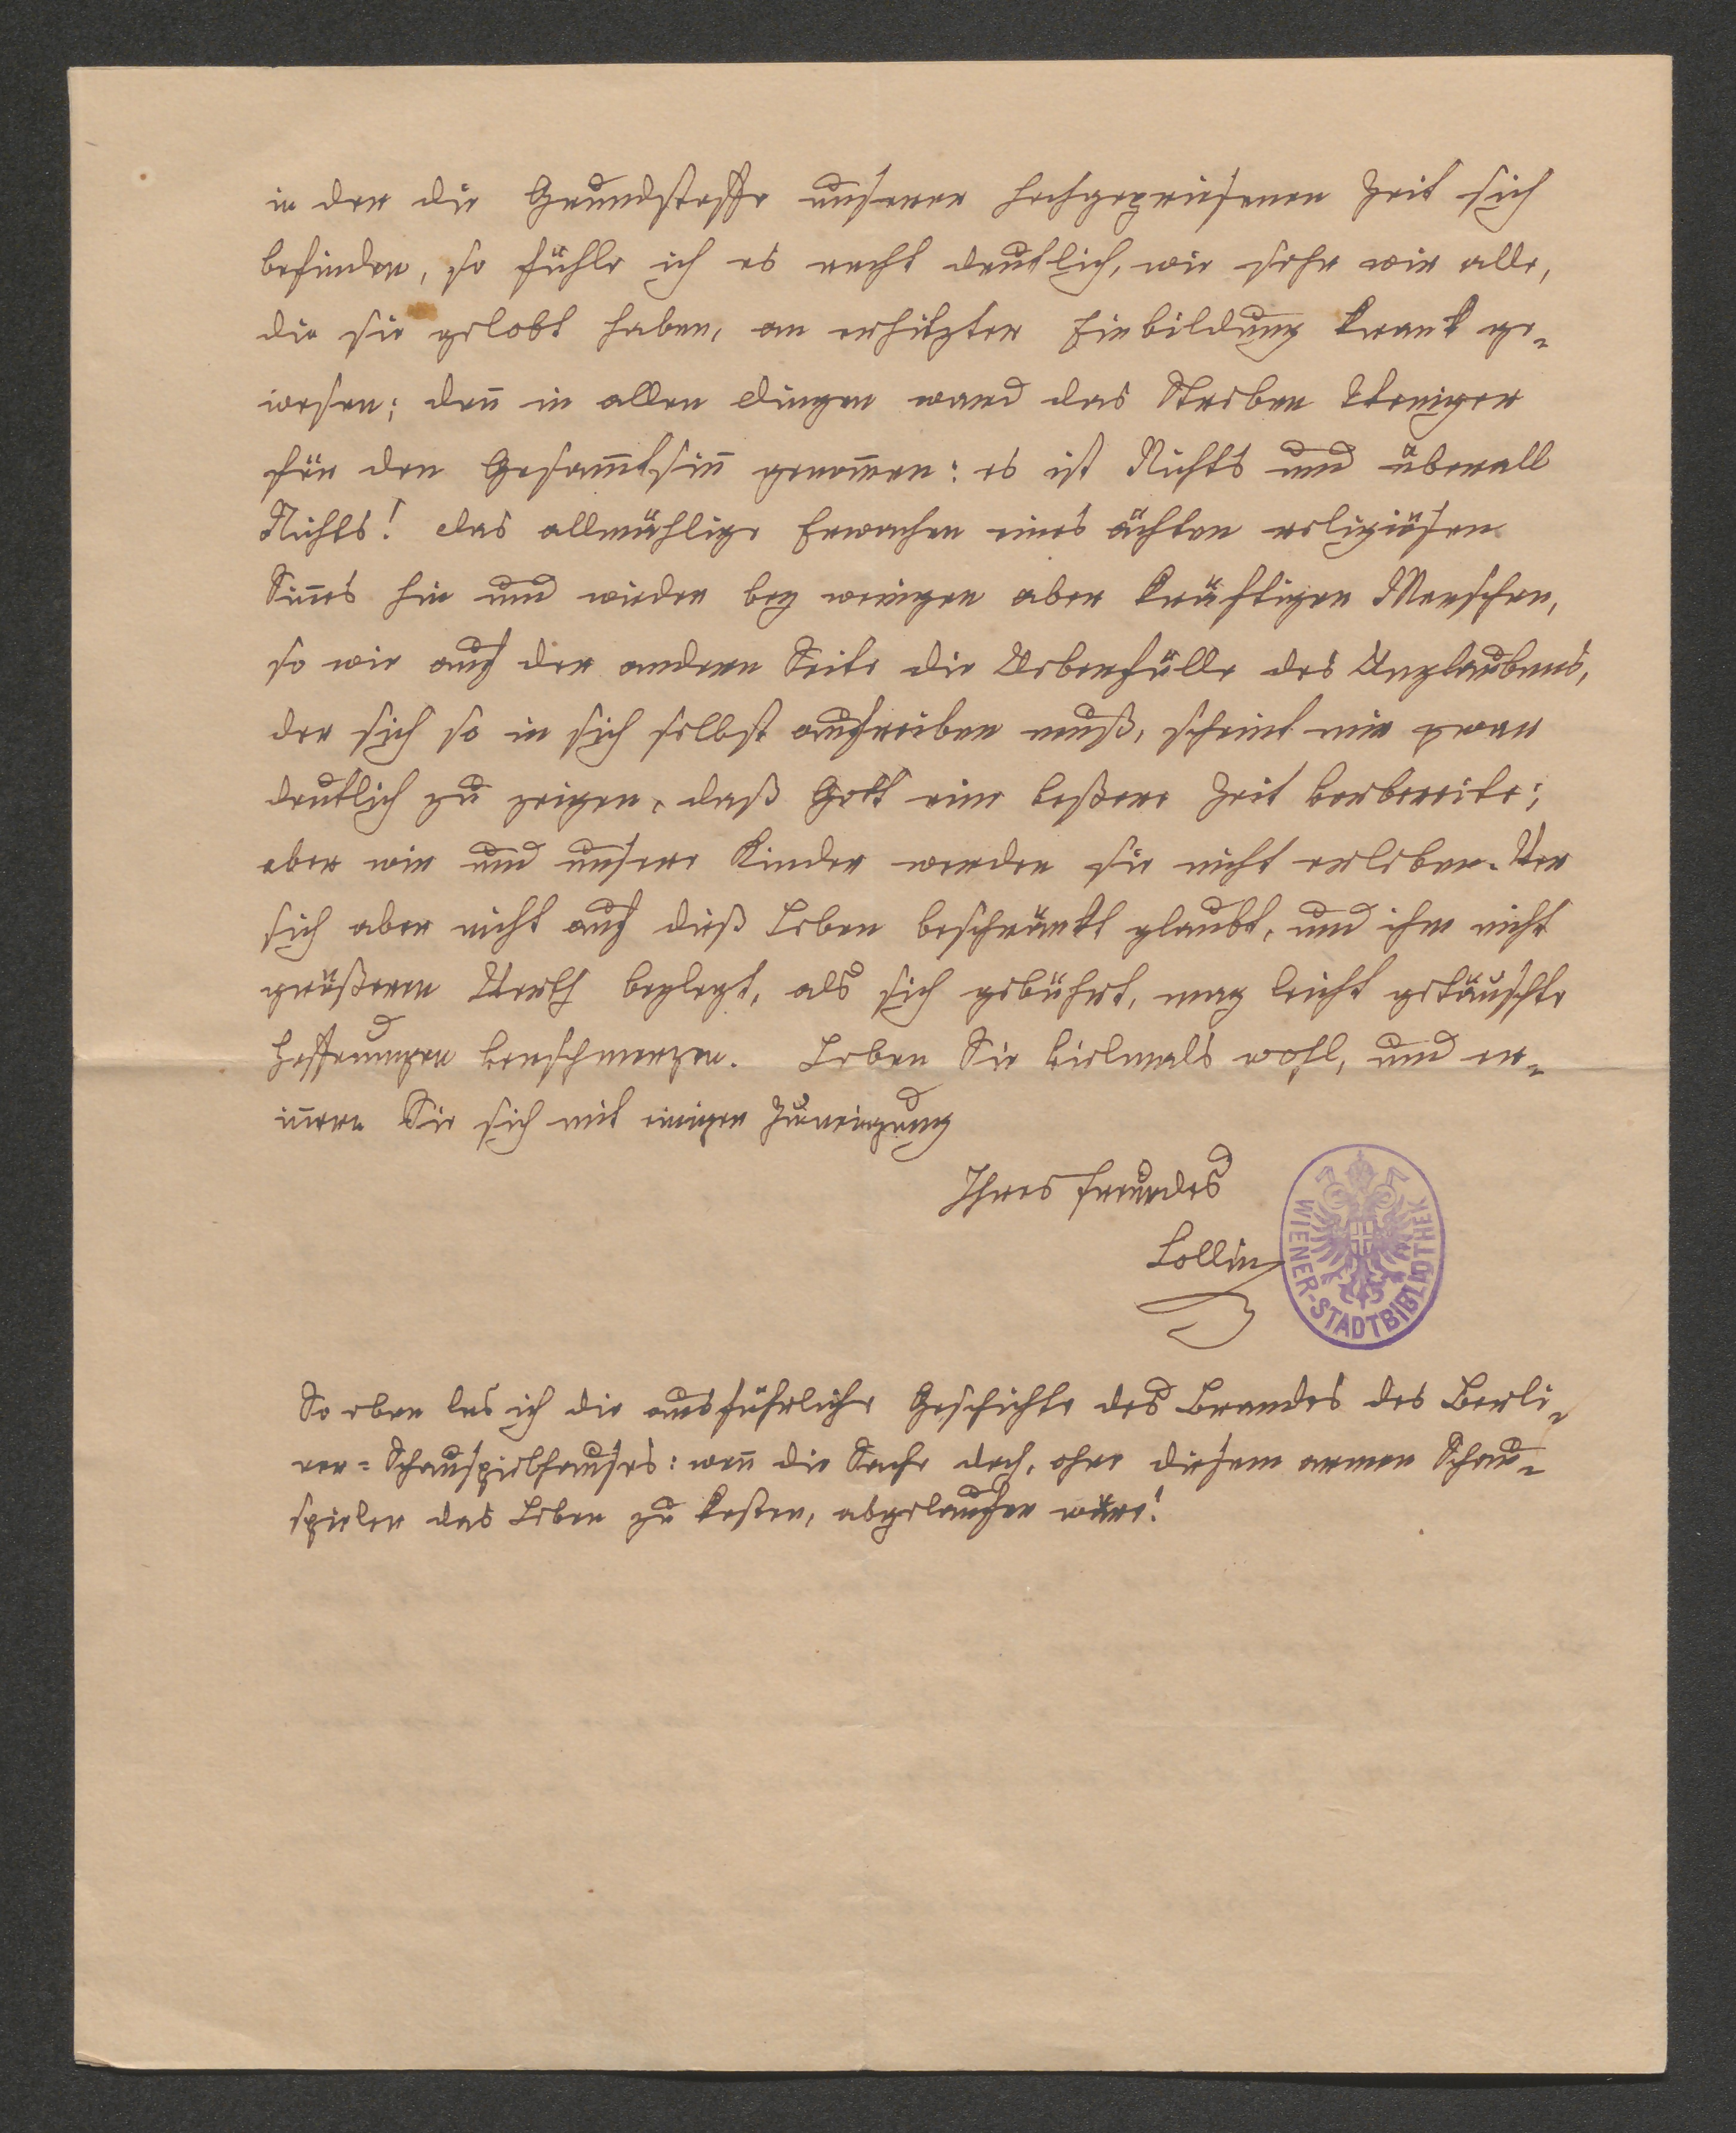 in der die Grundstoffe unserer hochgepriesenen Zeit sich
befinden, so fühle ich es recht deutlich, wie sehr wir alle,
die sie gelobt haben, an erhitzter Einbildung krank ge-
wesen; den̅ in allen Dingen ward das Streben Weniger
für den Gesam̅tsin̅ genom̅en: es ist Nichts und überall
Nichts! Das allmählige Erwachen eines ächten religiösen
Sin̅es hin und wieder bey wenigen aber kräftigen Menschen,
so wie auf der andern Seite die Ueberfülle des Unglaubens,
der sich so in sich selbst aufreiben muß, scheint mir zwar
deutlich zu zeigen, daß Gott eine beßere Zeit vorbereite;
aber wir und unsere Kinder werden sie nicht erleben. Wer
sich aber nicht auf dieß Leben beschränkt glaubt, und ihm nicht
größeren Werth beylegt, als sich gebührt, mag leicht getäuschte
Hoffnungen verschmerzen. Leben Sie vielmals wohl, und er-
in̅ern Sie sich mit einiger Zuneigung
Ihres Freundes
Collin
WIENER-STADTBIBLIOTHEK
So eben las ich die ausführliche Geschichte des Brandes des Berli-
ner=Schauspielhauses: wen̅ die Sache doch, ohne diesem armen Schau-
spieler das Leben zu kosten, abgelaufen wäre!